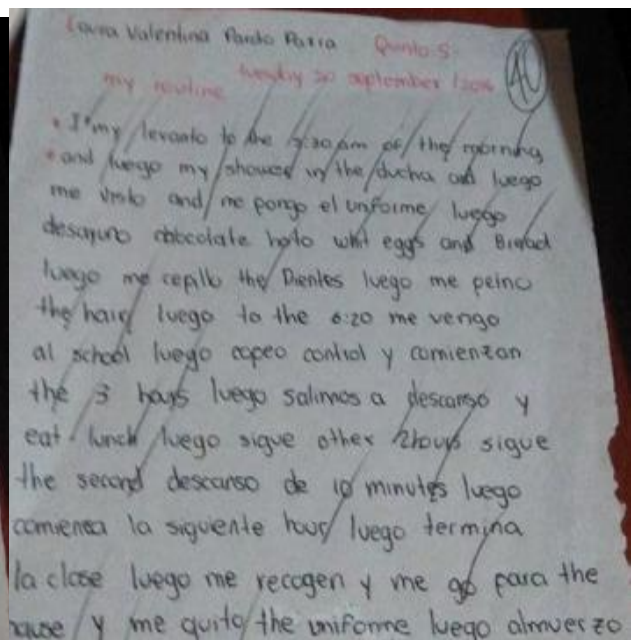 Laura Valentina Pardo Parra Quinto 5
my routine tuesday 20 september /2016
• I'my levanto to the :30 am of the morning
• and luego my shower in the ducha and luego
me visto and me pongo el uniforme luego
desayuno chocolate hoto whit eggs and Bread
luego me cepillo the Dientes luego me peino
the hair luego to the 6:20 me vengo
al school luego copeo control y comienzan
the 3 hours luego salimos a descanso y
eat lunch luego sigue other 2hours sigue
the second descanso de 10 minutes luego
comienza la siguiente hour luego termina
la clase luego me recogen y me go para the
house y me quito the uniforme luego almuerzo